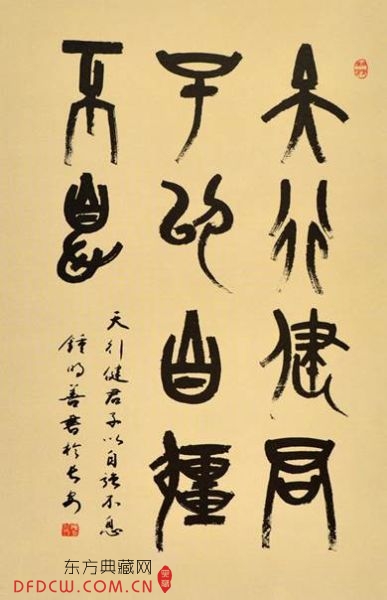 天行健君
子以自彊
不息
天行健君子以自强不息
鍾明善書於长安
东方典藏网
DFDCW.COM.CN